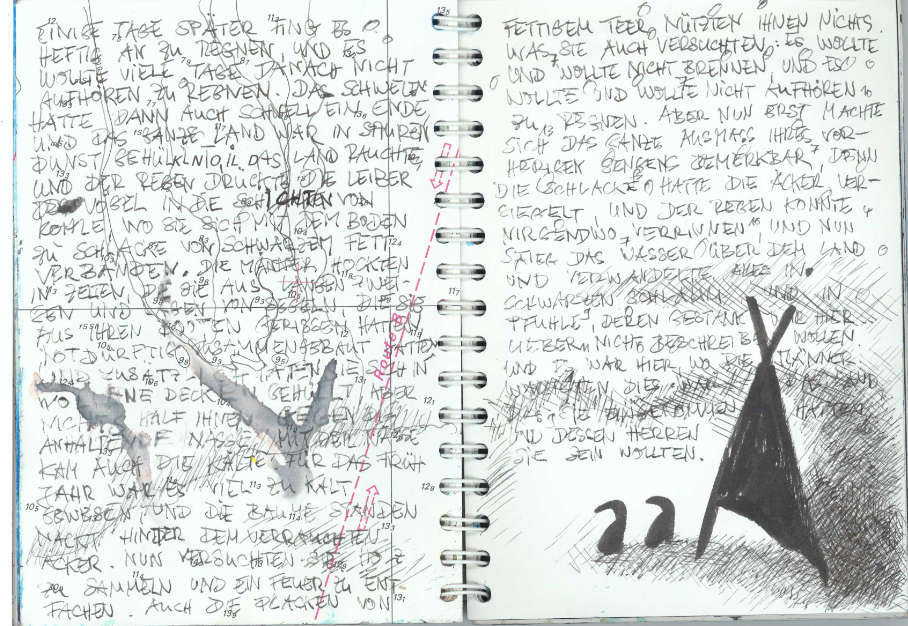 EINIGE TAGE SPÄTER FING ES
HEFTIG AN ZU REGNEN, UND ES
WOLLTE VIELE TAGE DANACH NICHT
AUFHÖREN ZU REGNEN. DAS SCHWELEN
HATTE DANN AUCH SCHNELL EIN ENDE
UND DAS GANZE LAND WAR IN SAUREN
DUNST GEHÜLLT. DAS LAND RAUCHTE
UND DER REGEN DRÜCKTE DIE LEIBER
DER VÖGEL IN DIE SCHICHTEN VON
KOHLE WO SIE SICH MIT DEM BODEN
ZU SCHLACKE VON SCHWARZEM FETT
VERBANDEN. DIE MÄNNER HOCKTEN
IN ZELTEN DIE SIE AUS LANGEN ZWEI-
GEN UND DIE SIE
AUS IHREN BOOTEN GERISSEN HATTEN
NOTDÜRFTIG ZUSAMMENGEBAUT HATTEN
UND ZUSÄTZ- HATTEN SIE SICH IN
DECKEN GEHÜLLT ABER
NICHTS HALF IHNEN GEGEN DIE
ANHALTENDE NÄSSE. MIT DER NÄSSE
KAM AUCH DIE KÄLTE FÜR DAS FRÜH-
JAHR WAR ES VIEL ZU KALT
GEWESEN UND DIE BÄUME STANDEN
NACKT HINTER DEM VERRAUCHTEN
ACKER. NUN VERSUCHTEN SIE HOLZ
ZU SAMMELN UND EIN FEUER ZU ENT-
FACHEN. AUCH DIE PLACKEN VON
Route B
FETTIGEM TEER NÜTZTEN IHNEN NICHTS.
WAS SIE AUCH VERSUCHTEN: ES WOLLTE
UND WOLLTE NICHT BRENNEN, UND ES
WOLLTE UND WOLLTE NICHT AUFHÖREN
ZU REGNEN. ABER NUN ERST MACHTE
SICH DAS GANZE AUSMASS IHRES VOR-
HERIGEN SENGENS BEMERKBAR, DENN
DIE SCHLACKE HATTE DIE ÄCKER VER-
SIEGELT, UND DER REGEN KONNTE
NIRGENDWO VERRINNEN, UND NUN
STIEG DAS WASSER ÜBER DEM LAND
UND VERWANDELTE ALLES IN
SCHWARZEN SCHLAMM UND IN
PFUHLE, DEREN GESTANK WIR HIER
LIEBER NICHT BESCHREIBEN WOLLEN
UND ES WAR HIER WO DIE MÄNNER
DIES WAR DAS LAND
DAS SIE EINGENOMMEN HATTEN
UND DESSEN HERREN
SIE SEIN WOLLTEN.